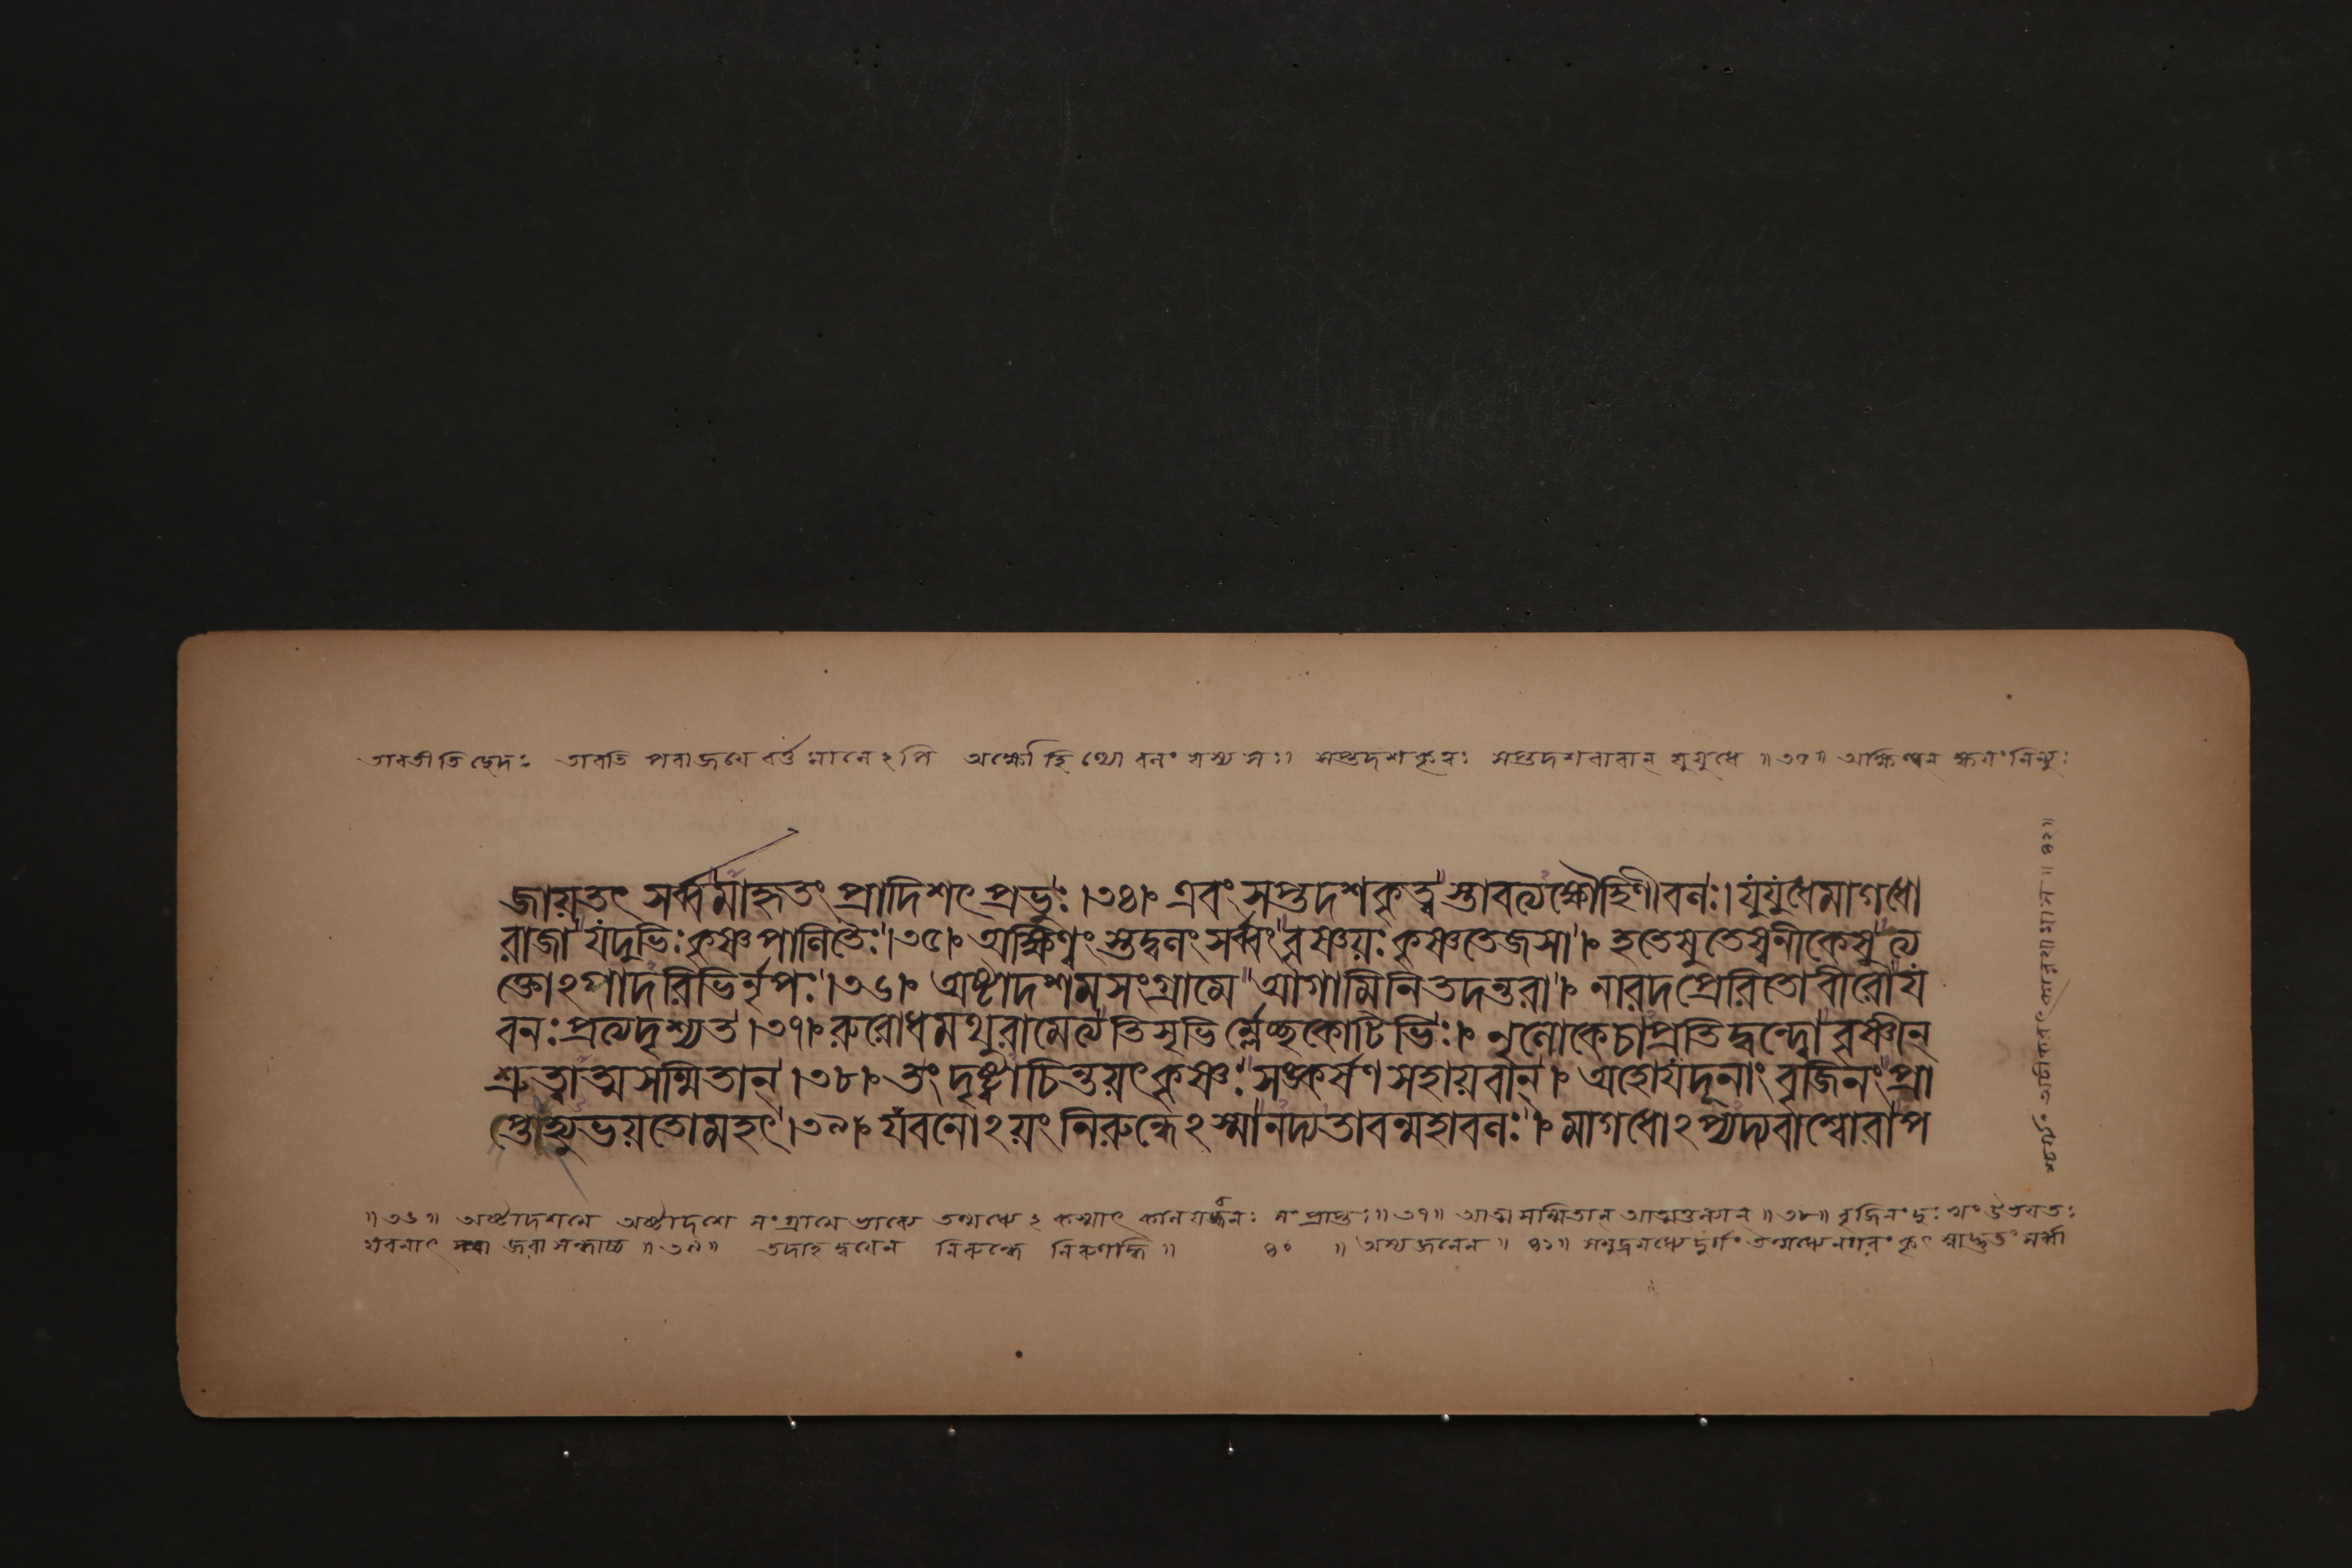 তাবতীতিছেদঃ তাবতি পরাজয়ে বর্ত্তমানেঽপি অক্ষৌহিণ্যো বলং যস্য সঃ। সপ্তদশকৃত্বঃ সপ্তদশবারান্ যুযুধে ॥৩৫॥ অক্ষিণ্বন্ ক্ষয়ং নিন্যুঃ
জায়তৎ সর্ব্বমাহৃতং প্রাদিশৎ প্রভুঃ।৩৪। এবং সপ্তদশকৃত্বস্তাবত্যক্ষৌহিণীবলঃ। যুযুধেমাগধো
রাজা যদুভিঃ কৃষ্ণপালিতৈঃ।৩৫। অক্ষিণ্বংস্তদ্বলং সর্ব্বং বৃষ্ণয়ঃ কৃষ্ণতেজসা। হতেষুতেষ্বনীকেষু ত্য
ক্তোঽগাদরিভির্নৃপঃ।৩৬। অষ্টাদশমসংগ্রামে আগামিনিতদন্তরা। নারদপ্রেরিতোবীরো য
বনঃ প্রত্যদৃশ্যত।৩৭। রুরোধমথুরামেত্য তিসৃভির্ম্লেচ্ছকোটিভিঃ। নৃলোকেচাপ্রতিদ্বন্দ্বো বৃষ্ণীন্
শ্রুত্বাত্মসম্মিতান্।৩৮। তং দৃষ্ট্বাচিন্তয়ৎকৃষ্ণঃ সঙ্কর্ষণসহায়বান্। অহোযদূনাং বৃজিনং প্রা
প্তংহ্যুভয়তোমহৎ।৩৯। যবনোঽয়ং নিরুন্ধেঽস্মানদ্যতাবন্মহাবলঃ। মাগধোঽপ্যদ্যবাশ্বোবাপ
॥৩৬॥ অষ্টাদশমে অষ্টাদশে সংগ্রামে ভাব্যে তন্মধ্যেঽকস্মাৎ কালযবনঃ সংপ্রাপ্তঃ॥৩৭॥ আত্মসম্মিতান্ আত্মতুল্যান্ ॥৩৮॥ বৃজিনং দুঃখং উভয়তঃ
যবনাৎ জরাসন্ধাচ্চ ॥৩৯॥ তদাহ দ্বয়েন নিরুন্ধে নিরুণদ্ধি॥ ৪০ ॥ অস্য জনেন॥ ৪১॥ সমুদ্রমধ্যে দুর্গং তন্মধ্যে নগরং কৃৎস্নাদ্ভুতং সর্ব্বা
শ্চর্য্যং অচীকরৎ কারয়ামাস॥৪২॥